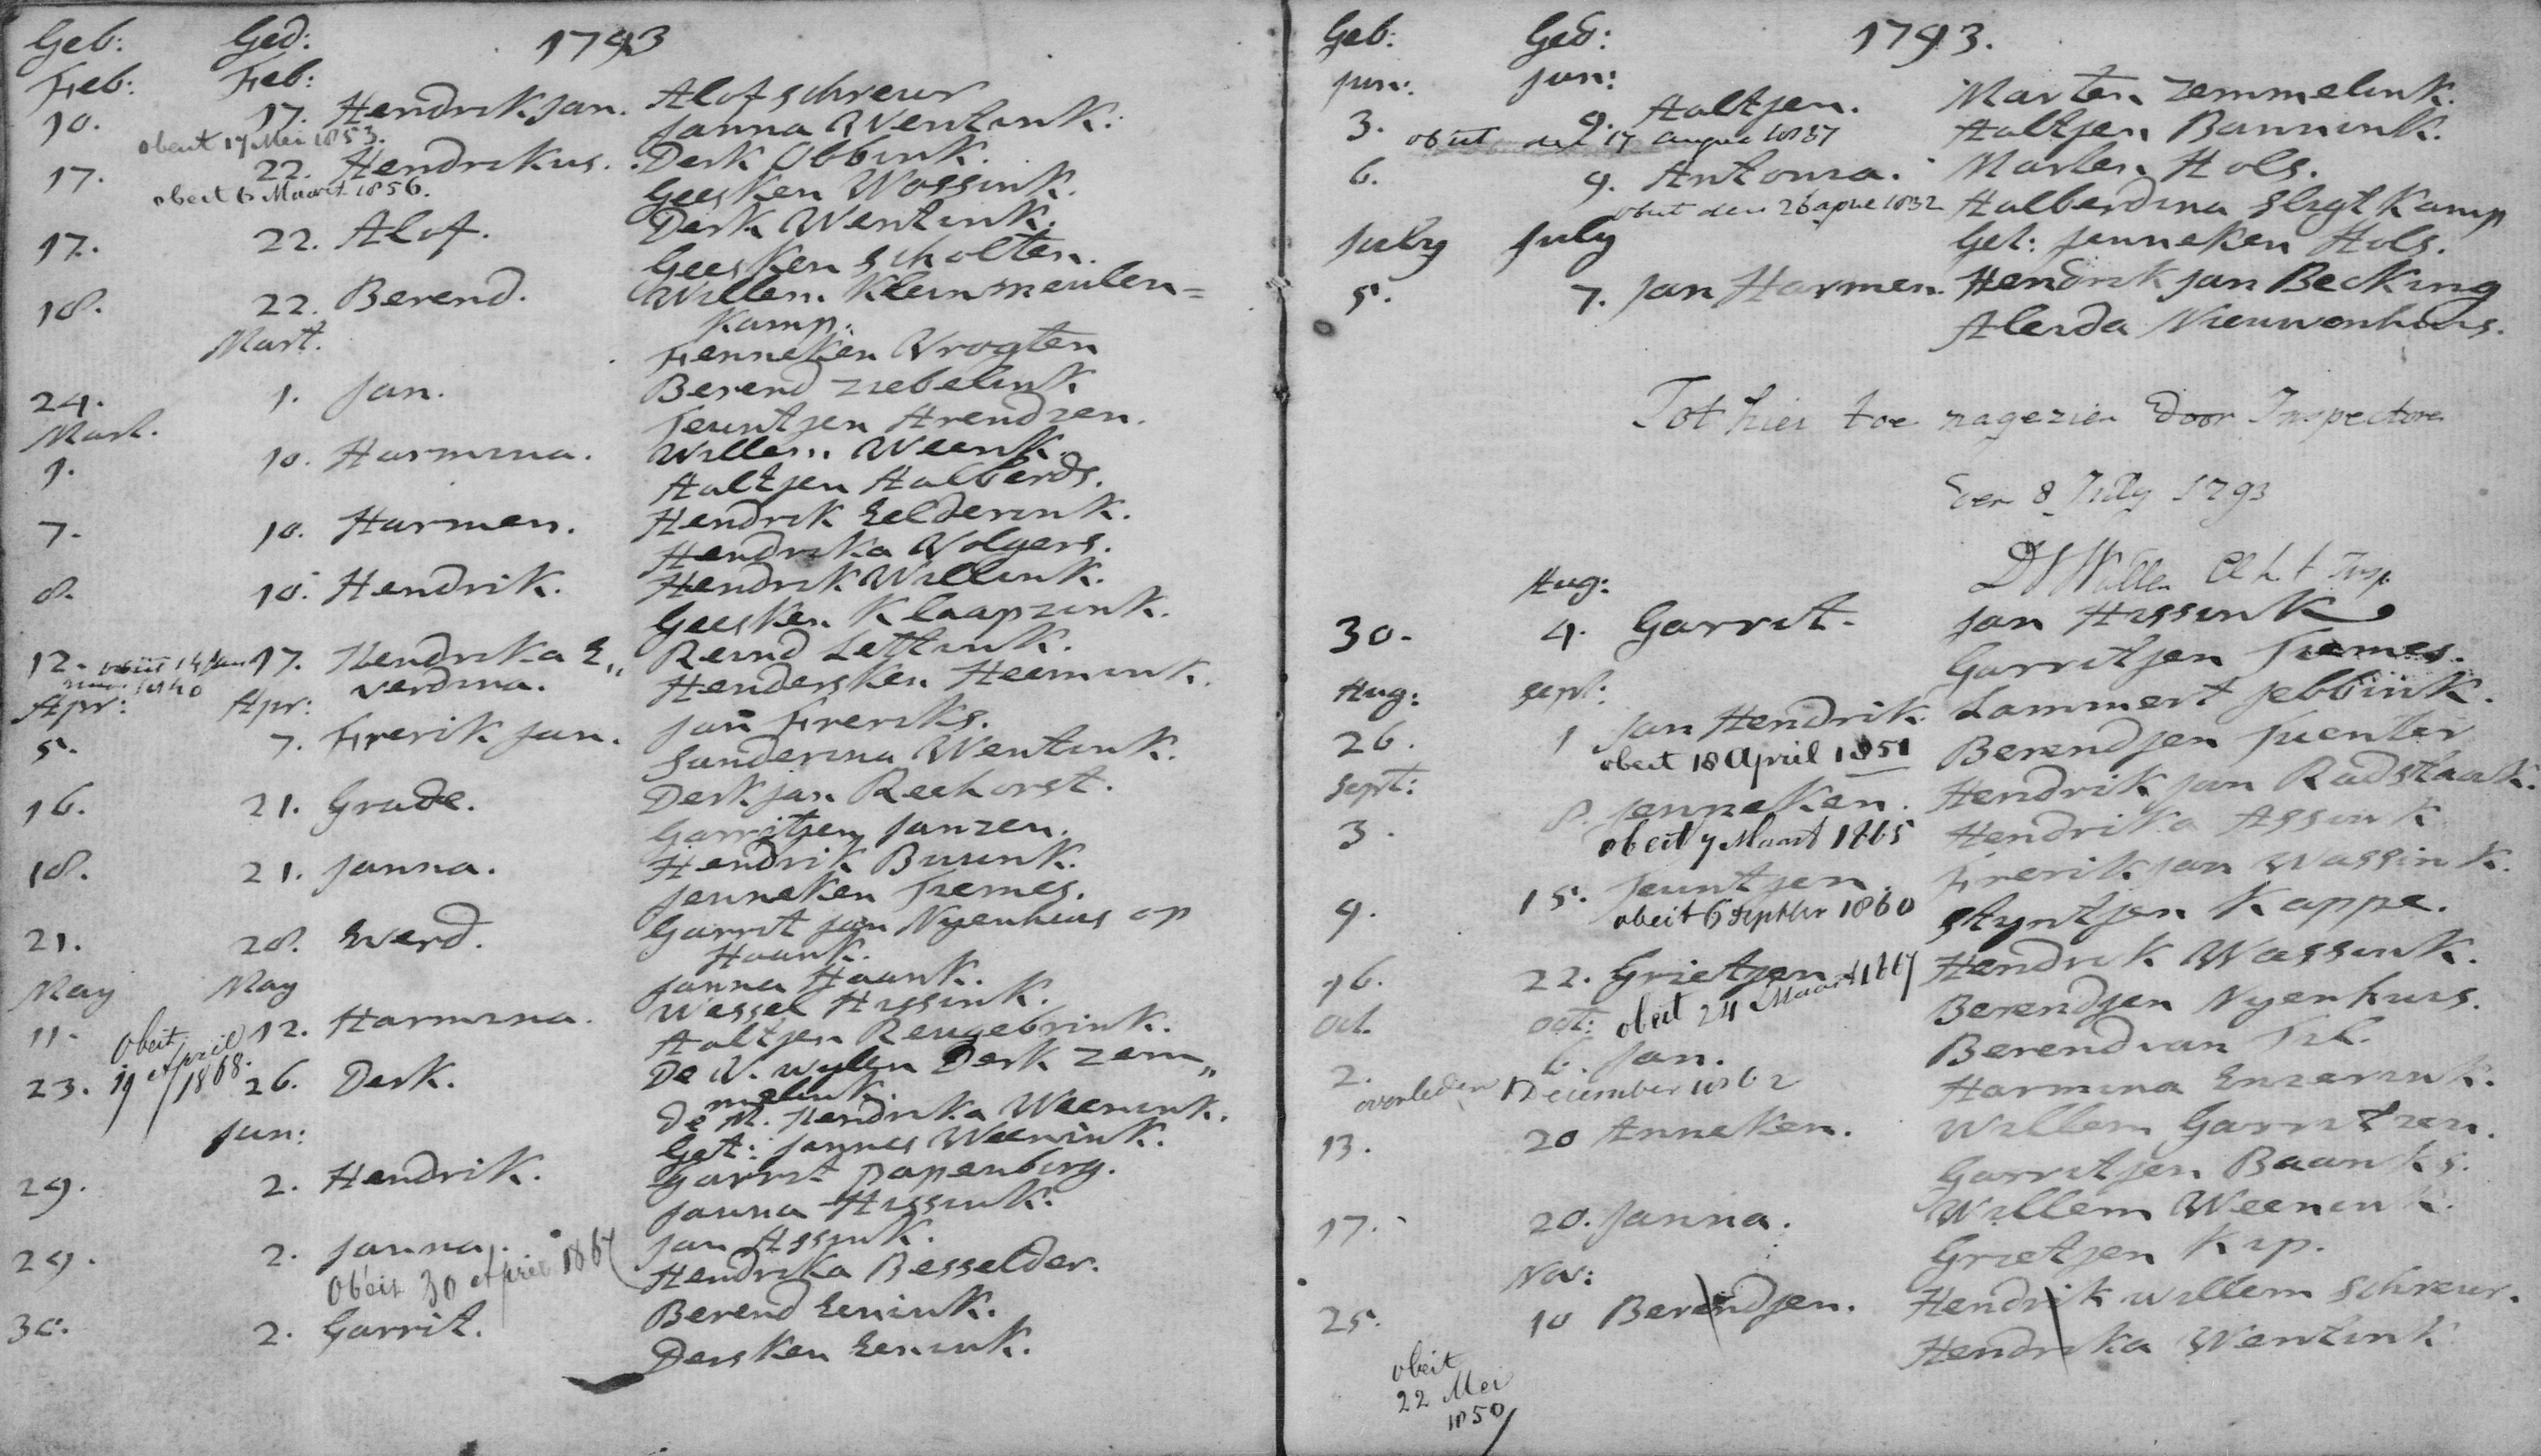 Geb: Ged: 1793
Feb: Feb:
10. 17. Hendrik Jan. Alof Schreur
Janna Wentink.
obeit 17 Mei 1853.
17. 22. Hendrikus. Derk Obbink.
obeit 6 Maart 1856. Geesken Wossink.
17. 22. Alof. Derk Wentink.
Geesken Scholten.
18. 22. Berend. Willem Klein Meulen=
Mart. Kamp.
Fenneken Vrogten
24. 1. Jan. Berend Ziebelink
Teuntjen Arendzen.
Mart.
1. 10. Harmina. Willem Weenk.
Aaltjen Aalberds.
7. 10. Harmen. Hendrik Eelderink.
Hendrika Wolgers.
8. 10. Hendrik. Hendrik Willink.
Geesken Klaapzink.
12. obiit 14 Jan 17. Hendrika E,, Reind Lettink.
1840 verdina. Hendersken Heemink.
Apr: Apr:
5. 7. Frerik Jan. Jan Freriks.
Sanderina Wentink.
16. 21. Grade. Derk Jan Reehorst.
Garritjen Janzen.
18. 21. Janna. Hendrik Buunk.
Jenneken Tiemes.
21. 28. Everd. Garrit Jan Nyenhuis op
Haank.
Janna Haank.
May May
11. 12. Harmina. Wessel Hissink.
Aaltjen Reugebrink.
obeit
19 April
1868.
23. 26. Derk. De V. wyllen Derk Zem,,
melink.
De M. Hendrika Weenink.
Get: Jannes Weenink.
Jun:
29. 2. Hendrik. Garrit Papenborg.
Janna Hissink.
29. 2. Janna. Jan Assink.
Obeit 30 April 1867 Hendrika Besselder.
30. 2. Garrit. Berend Eenink.
Dersken Eenink.
Geb: Ged: 1793.
Jun: Jun:
3. 9. Aaltjen. Marten Zemmelink.
obiit den 17 1837 Aaltjen Bannink.
6. 9. Antonia. Marten Hols.
obiit den 26 1832 Halberdina Slagtkamp
July July Get: Jenneken Hols.
5. 7. Jan Harmen. Hendrik Jan Becking
Aleida Nieuwenhuis.
Tot hier toe nagezien door Inspectore
den 8 July 1793
Aug:
30. 4. Garrit. Jan Hissink
Garritjen Tiemes.
Aug: Sept:
26. 1 Jan Hendrik. Lammert Jebbink.
obeit 18 April 1851 Berendjen Tuenter
Sept:
3. 8. Jenneken. Hendrik Jan Radstaak.
obeit 7 Maart 1865 Hendrika Assink
9. 15. Teuntjen. Frerik Jan Wassink.
obeit 6 Septbr 1860 Styntjen Kappe.
16. 22. Grietjen Hendrik Wassink.
obeit 24 Maart 1867 Berendjen Nyenhuis.
Oct. Oct:
2. 6. Jan. Berend van Til.
overleden 1 December 1862 Harmina Enzerink.
13. 20 Anneken. Willem Garritzen.
Garritjen Baanks.
17. 20. Janna. Willem Weenink.
Grietjen Kip.
Nov:
25. 10 Berendjen. Hendrik Willem Schreur.
Hendrika Wentink
obeit
22 Mei
1850